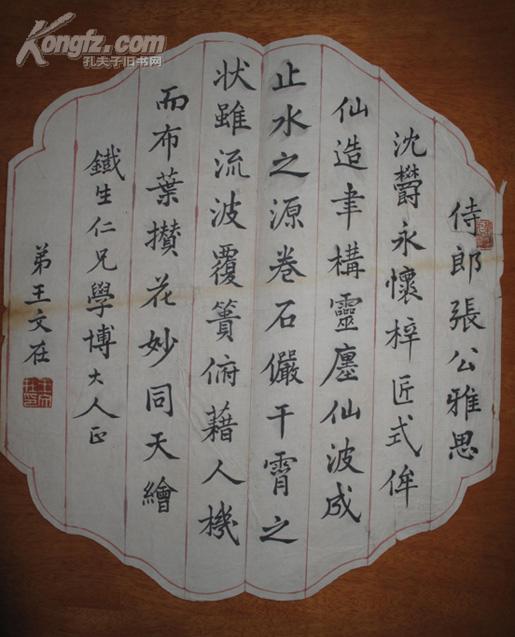 Kongfz.com
孔夫子旧书网
侍郎張公雅思
沈欝永懷梓匠式侔
仙造聿構靈廛仙波成
止水之源卷石儼干霄之
状雖流波覆簣俯藉人機
而布葉攅花妙同天繪
鐵生仁兄學博大人正
弟王文在